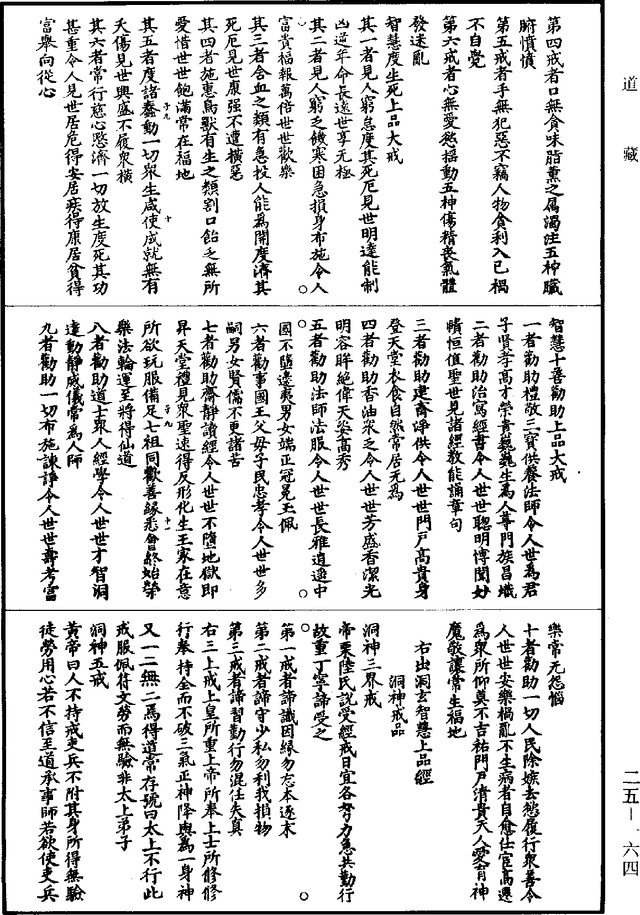 道藏
第四戒者口無貪味脂薰之屬濁注五神臟
腑憒憒
第五戒者手無犯惡不竊人物貪利入己禍
不自覺
第六戒者心無愛慾搖動五神傷精喪氣體
發迷亂
智慧度生死上品大戒
其一者見人窮急度其死厄見世明達能制
凶逆年命長遠世享无極
其二者見人窮乏饑寒困急損身布施令人
富貴福報萬倍世世歡樂
其三者含血之類有急投人能為開度濟其
死厄見世康强不遭橫惡
其四者施惠鳥獸有生之類割口飴之無所
愛惜世世飽滿常在福地
其五者度諸蠢動一切衆生咸使成就無有
夭傷見世興盛不履衆橫
其六者常行慈心愍濟一切放生度死其功
甚重令人見世居危得安居疾得康居貧得
富舉向從心
智慧十善勸助上品大戒
一者勸助禮敬三寶供養法師令人世為君
子賢孝高才榮貴巍巍生為人尊門族昌熾
二者勸助治寫經書令人世世聰明博聞妙
賾恒值聖世見諸經教能誦章句
三者勸助建齋淨供令人世世門戶高貴身
登天堂衣食自然常居无為
四者勸助香油衆乏令人世世芳盛香潔光
明容眸絕偉天姿高秀
五者勸助法師法服令人世世長雅逍遥中
國不墮邊夷男女端正冠冕玉佩
六者勸事國王父母子民忠孝令人世世多
嗣男女賢儒不更諸苦
七者勸助齋靜讀經令人世世不墮地獄即
昇天堂禮見衆聖速得反形化生王家在意
所欲玩服備足七祖同歡善緣悉會終始榮
樂法輪運至將得仙道
八者勸助道士衆人經學令人世世才智洞
達動靜威儀常為人師
九者勸助一切布施諫諍令人世世壽考富
樂常无怨惱
十者勸助一切人民除嫉去慾履行衆善令
人世世安樂禍亂不生病者自愈仕宦高遷
為衆所仰莫不吉祐門戶清貴天人愛育神
魔敬讓常生福地
右出洞玄智慧上品經
洞神戒品
洞神三界戒
帝栗陸氏說受經戒日宜各努力急共勤行
故重丁寧諦受之
第一戒者諦識因緣勿忘本逐末
第二戒者諦守少私勿利我損物
第三戒者諦習勸行勿混任失真
右三上戒上皇所重上帝所奉上士所修修
行奉持全而不破三氣正神降與為一身神
又一二無二焉得道常存號曰太上不行此
戒服佩符文勞而無驗非太上弟子
洞神五戒
黃帝曰人不持戒吏兵不附其身所得無驗
徒勞用心若不信至道承事師若欲使吏兵
二五－一六四